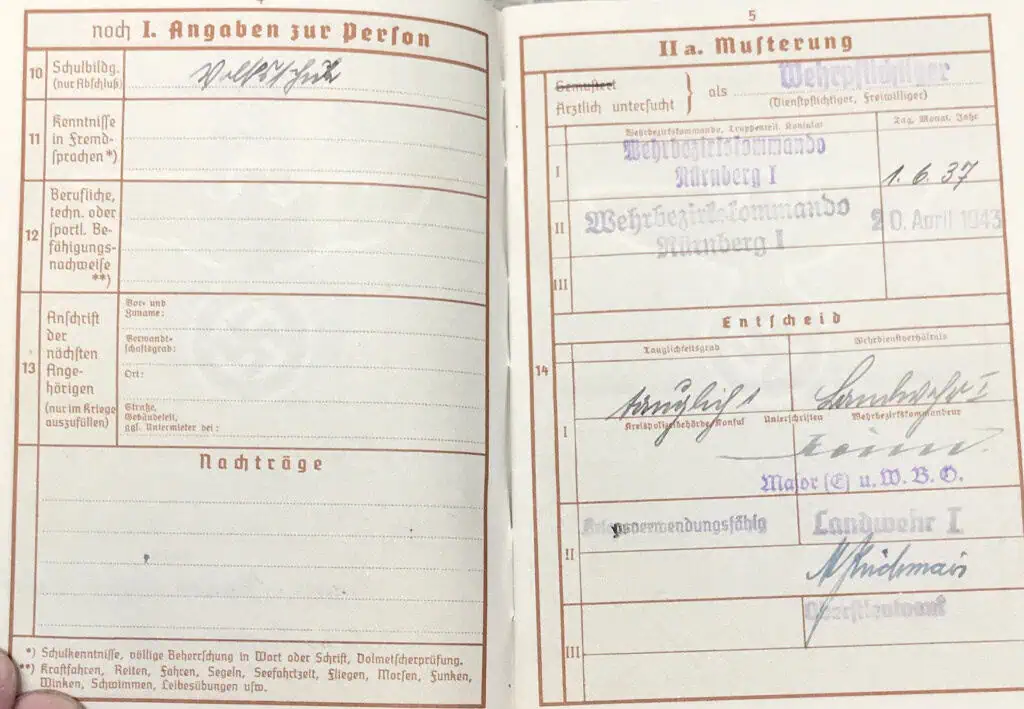 4
noch I. Angaben zur Person
10
Schulbildg.
(nur Abschluß)
Volksschule
11
Kenntnisse
in Fremd-
sprachen*)
12
Berufliche,
techn. oder
sportl. Be-
fähigungs-
nachweise
**)
13
Anschrift
der
nächsten
Ange-
hörigen
(nur im Kriege
auszufüllen)
Vor- und
Zuname:
Verwandt-
schaftsgrad:
Ort:
Straße,
Gebäudeteil,
ggf. Untermieter bei:
Nachträge
*) Schulkenntnisse, völlige Beherrschung in Wort oder Schrift, Dolmetscherprüfung.
**) Kraftfahren, Reiten, Fahren, Segeln, Seefahrtzeit, Fliegen, Morsen, Funken,
Winken, Schwimmen, Leibesübungen usw.
5
IIa. Musterung
Gemustert
Ärztlich untersucht
als
Wehrpflichtiger
(Dienstpflichtiger, Freiwilliger)
Wehrbezirkskommando, Truppenteil, Konsulat
Tag, Monat, Jahr
I
Wehrbezirkskommando
Nürnberg I
1. 6. 37
II
Wehrbezirkskommando
Nürnberg I
20. April 1943
III
Entscheid
14
Tauglichkeitsgrad
Wehrdienstverhältnis
I
tauglich 1
Landwehr I
Kreispolizeibehörde/Konsul
Unterschriften
Wehrbezirkskommandeur
Major (E) u. W. B. O.
II
Kriegsverwendungsfähig
Landwehr I
Oberstleutnant
III